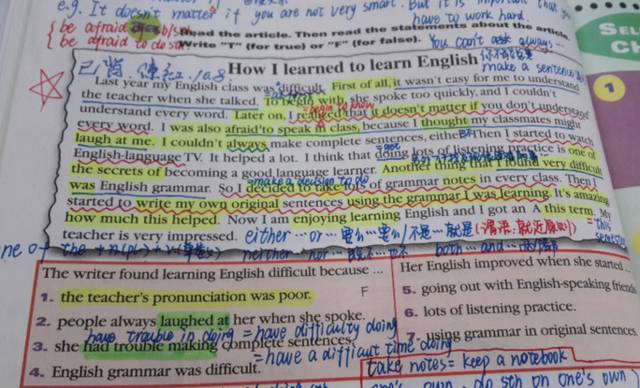 e.g. It doesn't matter if you are not very smart. But it is important that you
have to work hard.
be afraid of sb/sth
be afraid to do sth
Read the article. Then read the statements about the article.
Write "T" (for true) or "F" (for false).
You can't always
SEL
How I learned to learn English
make a sentence
1
Last year my English class was difficult. First of all, it wasn't easy for me to understand
the teacher when she talked. To begin with, she spoke too quickly, and I couldn't
understand every word. Later on, I realized that it doesn't matter if you don't understand
every word. I was also afraid to speak in class, because I thought my classmates might
laugh at me. I couldn't always make complete sentences, either. Then I started to watch
English-language TV. It helped a lot. I think that doing lots of listening practice is one of
the secrets of becoming a good language learner. Another thing that I found very difficult
was English grammar. So I decided to take lots of grammar notes in every class. Then I
= make a decision to do
started to write my own original sentences using the grammar I was learning. It's amazing
how much this helped. Now I am enjoying learning English and I got an A this term. My
teacher is very impressed.
either…or…要么…要么/不是…就是
就近原则
= this semester
neither…nor…
both…and…
The writer found learning English difficult because ...
1. the teacher's pronunciation was poor.
F
2. people always laughed at her when she spoke.
have trouble in doing = have difficulty doing
3. she had trouble making complete sentences.
= have a difficult time doing
4. English grammar was difficult.
Her English improved when she started ...
5. going out with English-speaking friends
6. lots of listening practice.
7. using grammar in original sentences.
take notes = keep a notebook
do sth on one's own